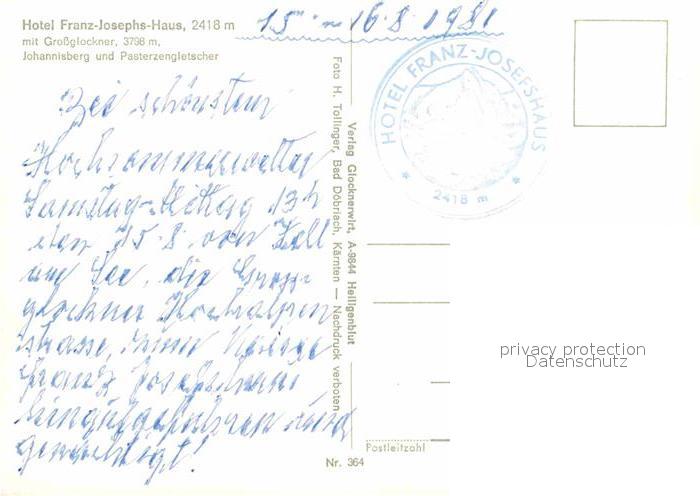 Hotel Franz-Josephs-Haus, 2418 m
mit Großglockner, 3798 m,
Johannisberg und Pasterzengletscher
15. - 16. 8. 1981
Bei schönstem
Hochsommerwetter
Samstag-Mittag 13 h
den 15. 8. von Zell
am See, die Gross-
glockner Hochalpen
strasse, Kaiser
Franz Josefshaus
und
HOTEL FRANZ-JOSEFSHAUS
* 2418 m *
Foto H. Tollinger, Bad Döbriach, Kärnten — Nachdruck verboten
Verlag Glocknerwirt, A-9844 Heiligenblut
privacy protection
Datenschutz
Postleitzahl
Nr. 364